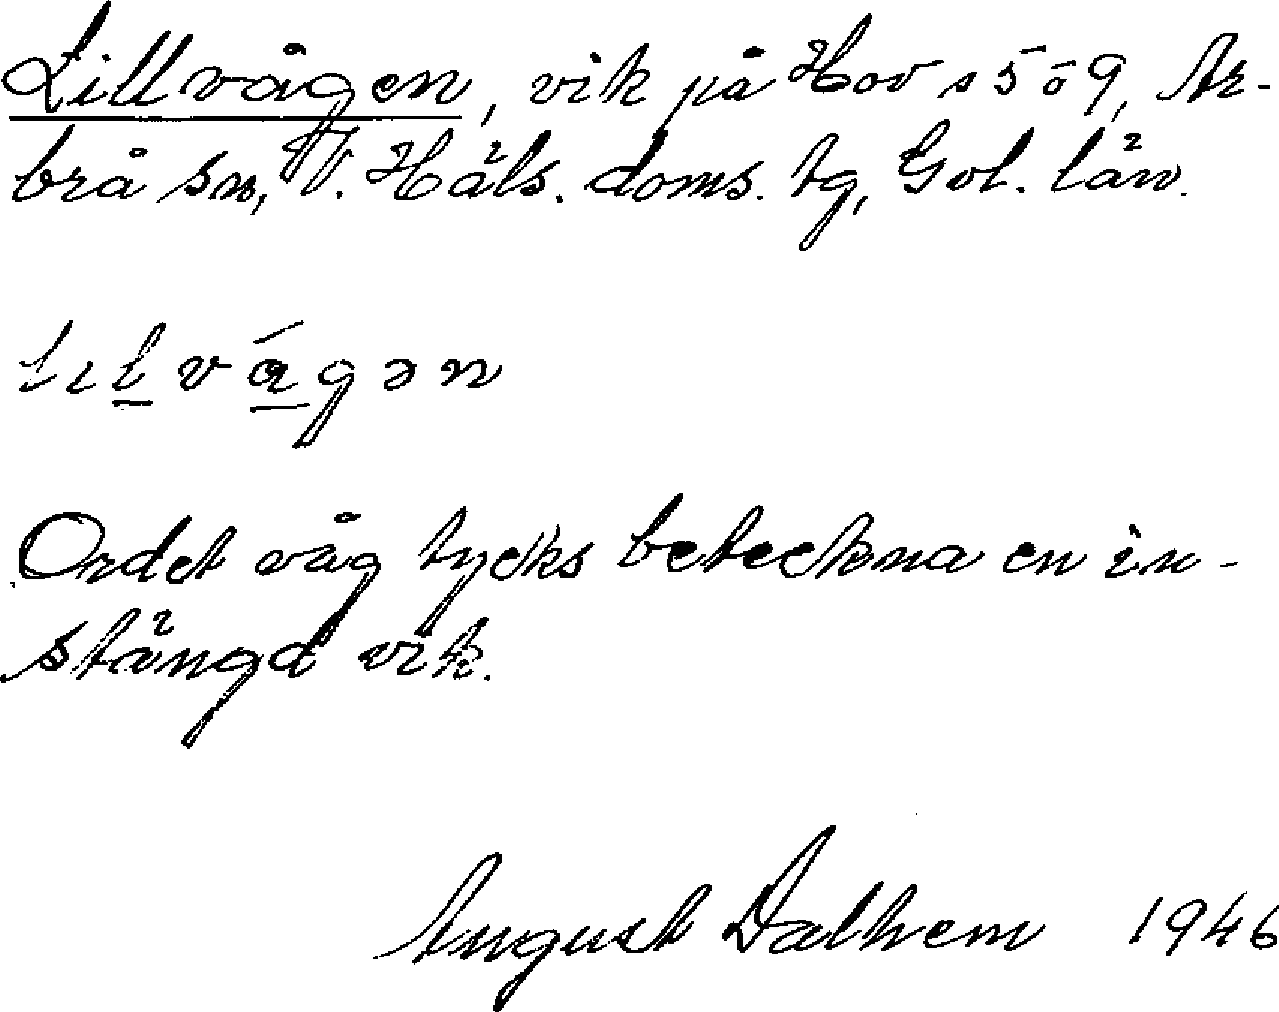 Lillvågen, vik på Hov s 5 o 9, Ar-
brå sn, V. Häls. doms. tg, Gvl. län.
lılvágən
Ordet våg tycks beteckna en in-
stängd vik.
August Dalhem 1946